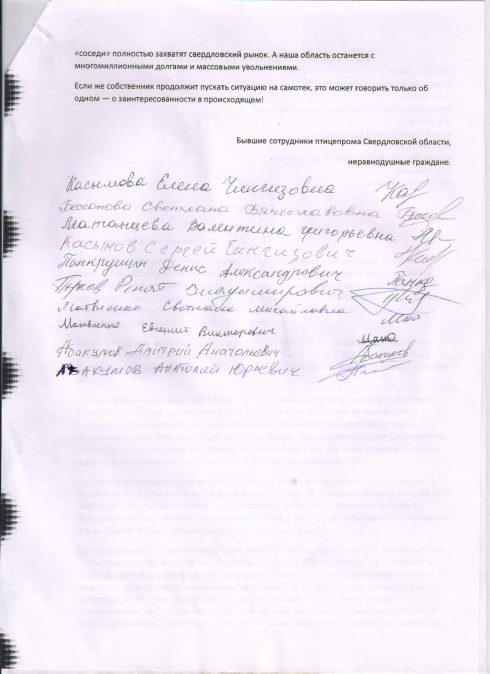 «соседи» полностью захватят свердловский рынок. А наша область останется с
многомиллионными долгами и массовыми увольнениями.
Если же собственник продолжит пускать ситуацию на самотек, это может говорить только об
одном — о заинтересованности в происходящем!
Бывшие сотрудники птицепрома Свердловской области,
неравнодушные граждане.
Касымова Елена Чингизовна
Светлана Вячеславовна
Валентина Григорьевна
Касымов Сергей Чингизович
Панкрушин Денис Александрович
Ренат Владимирович
Матвиенко Светлана Михайловна
Матвиенко Евгений Викторович
Абакумов Дмитрий Анатольевич
Абакумов Анатолий Юрьевич